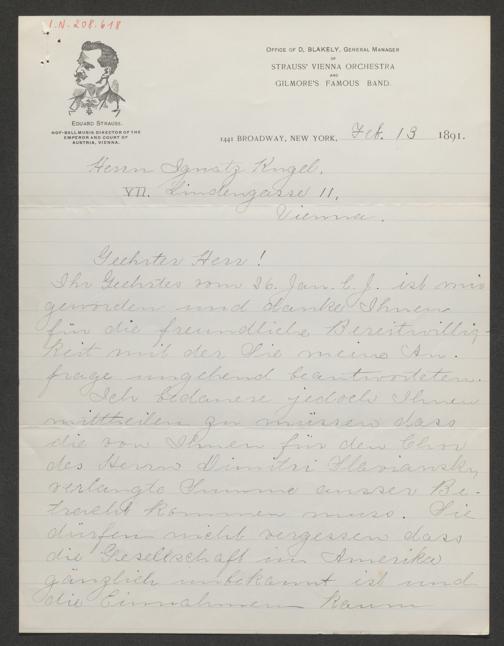 I.N. 208.618
OFFICE OF D. BLAKELY, GENERAL MANAGER
OF
STRAUSS' VIENNA ORCHESTRA
AND
GILMORE'S FAMOUS BAND.
EDUARD STRAUSS.
HOF-BALL MUSIK DIRECTOR OF THE
EMPEROR AND COURT OF
AUSTRIA, VIENNA.
1441 BROADWAY, NEW YORK, Feb. 13 1891.
Herrn Ignatz Kugel.
VII. Lindengasse 11,
Vienna.
Geehrter Herr!
Ihr Geehrtes vom 26. Jan. l. J. ist mir
geworden und danke Ihnen
für die freundliche Bereitwillig-
keit mit der Sie meine An-
frage umgehend beantworteten.
Ich bedauere jedoch Ihnen
mittheilen zu müssen dass
die von Ihnen für den Chor
des Herrn Dimitri Slaviansky
verlangte Summe ausser Be-
tracht kommen muss. Sie
dürfen nicht vergessen dass
die Gesellschaft in Amerika
gänzlich unbekannt ist und
die Einnahmen kaum